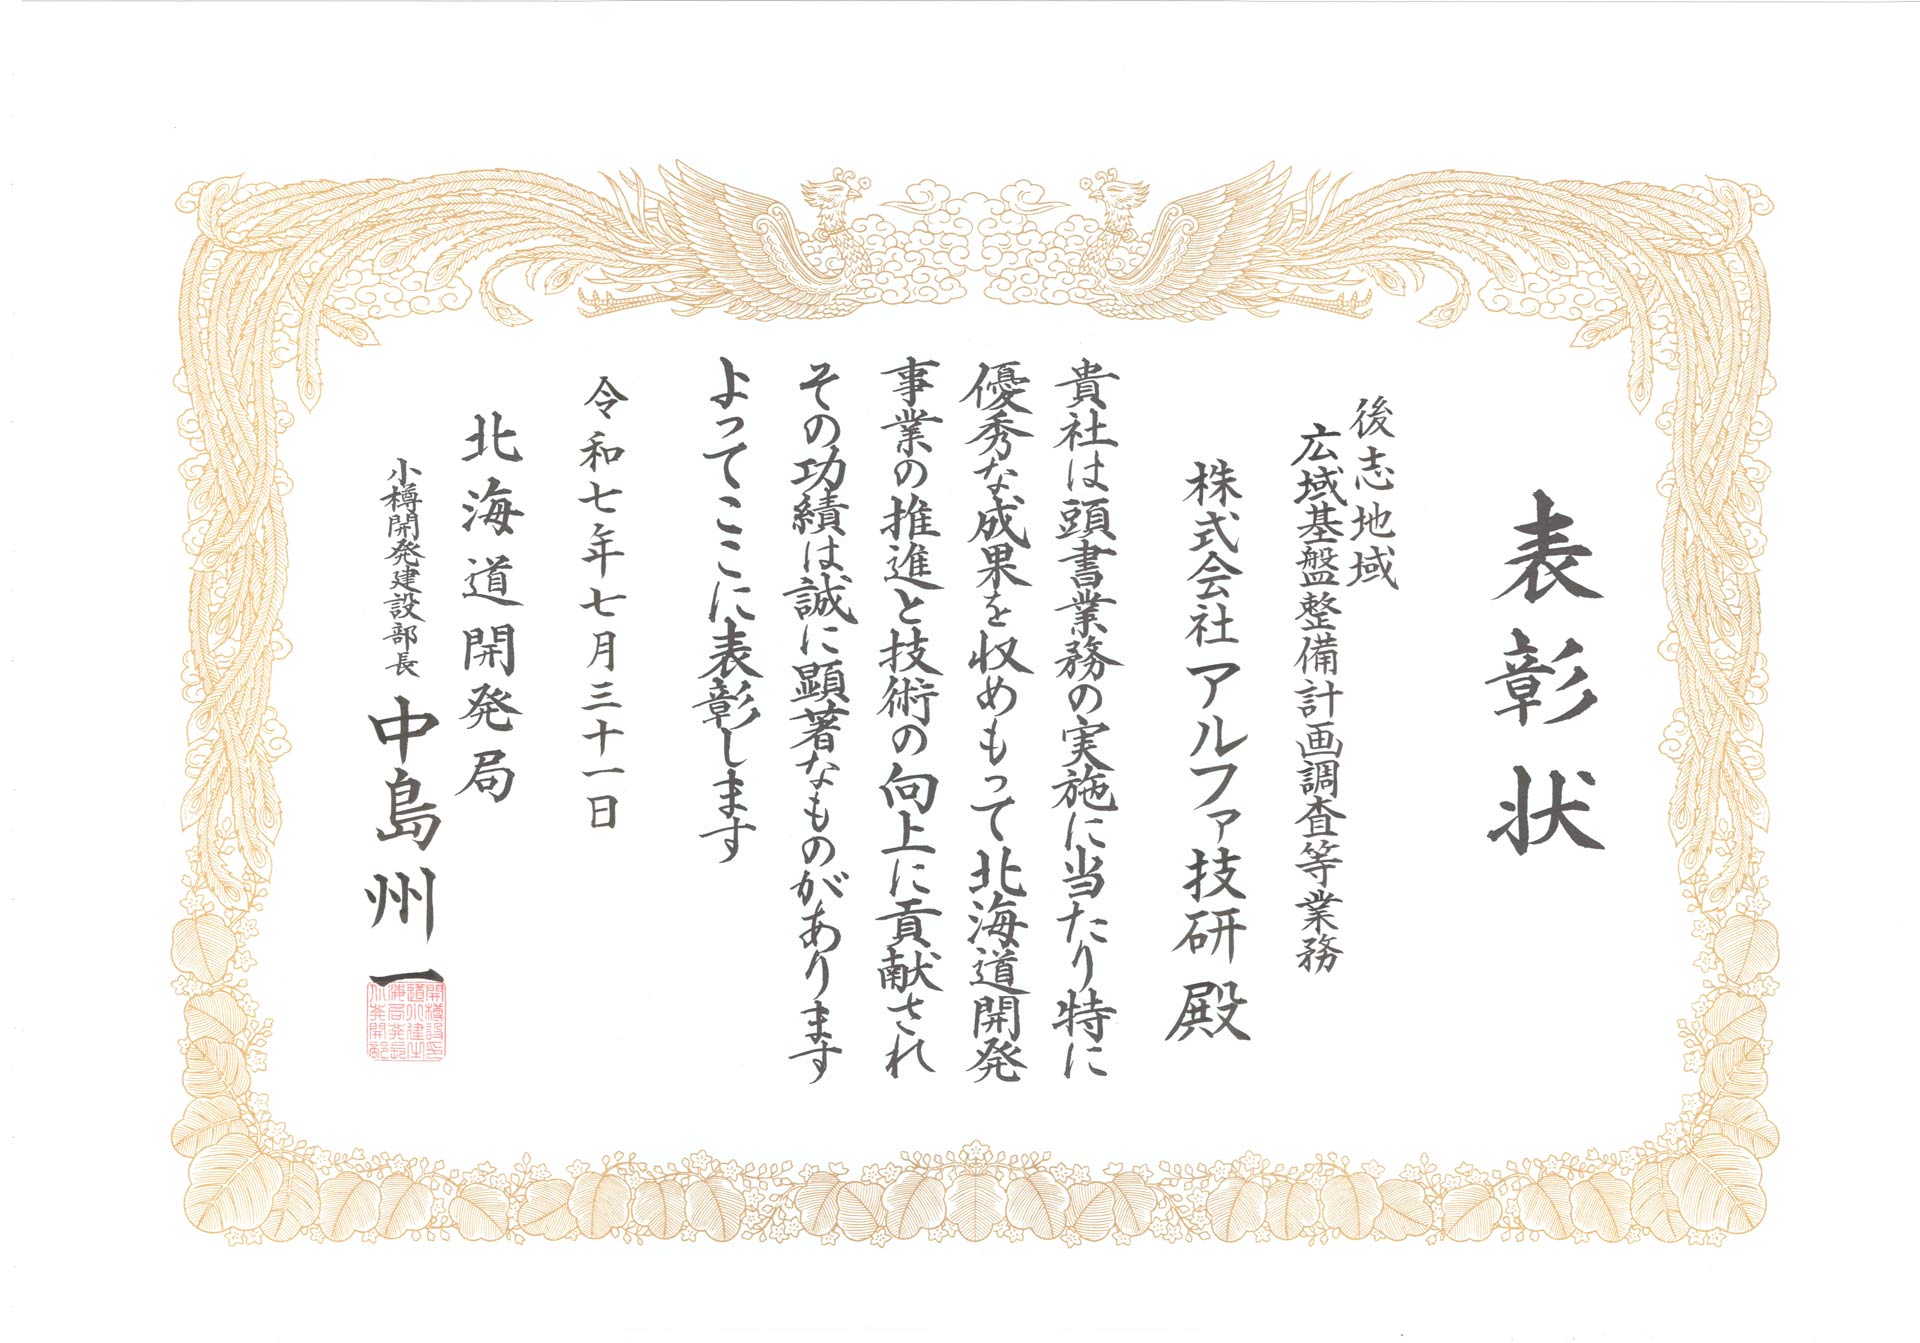 表彰状
後志地域
広域基盤整備計画調査等業務
株式会社アルファ技研 殿
貴社は頭書業務の実施に当たり特に
優秀な成果を収めもって北海道開発
事業の推進と技術の向上に貢献され
その功績は誠に顕著なものがあります
よってここに表彰します
令和七年七月三十一日
北海道開発局
小樽開発建設部長 中島州一